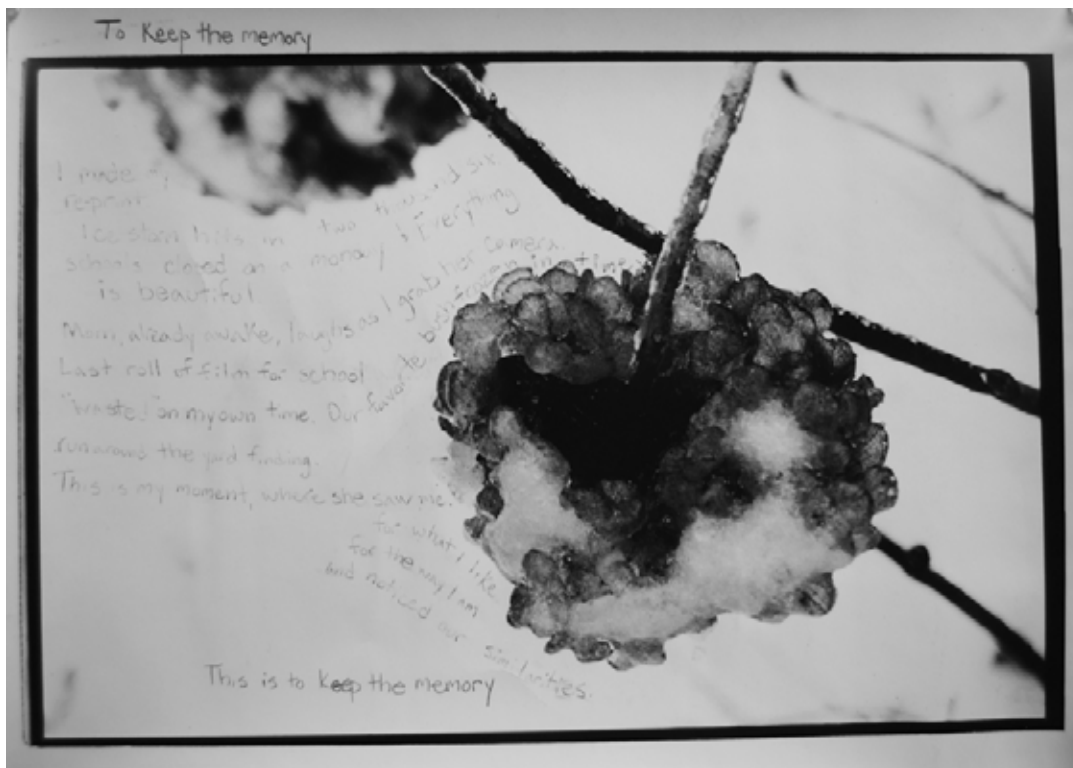 To Keep the memory
I made my
reprint.
two thousand six.
Ice storm hits in
schools closed on a monday & Everything
is beautiful
Mom, already awake, laughs as I grab her camera.
Last roll of film for school
"wasted" on my own time. Our favorite bush frozen in time
run around the yard finding.
This is my moment, where she saw me.
for what I like
for the way I am
and noticed our similarities.
This is to keep the memory